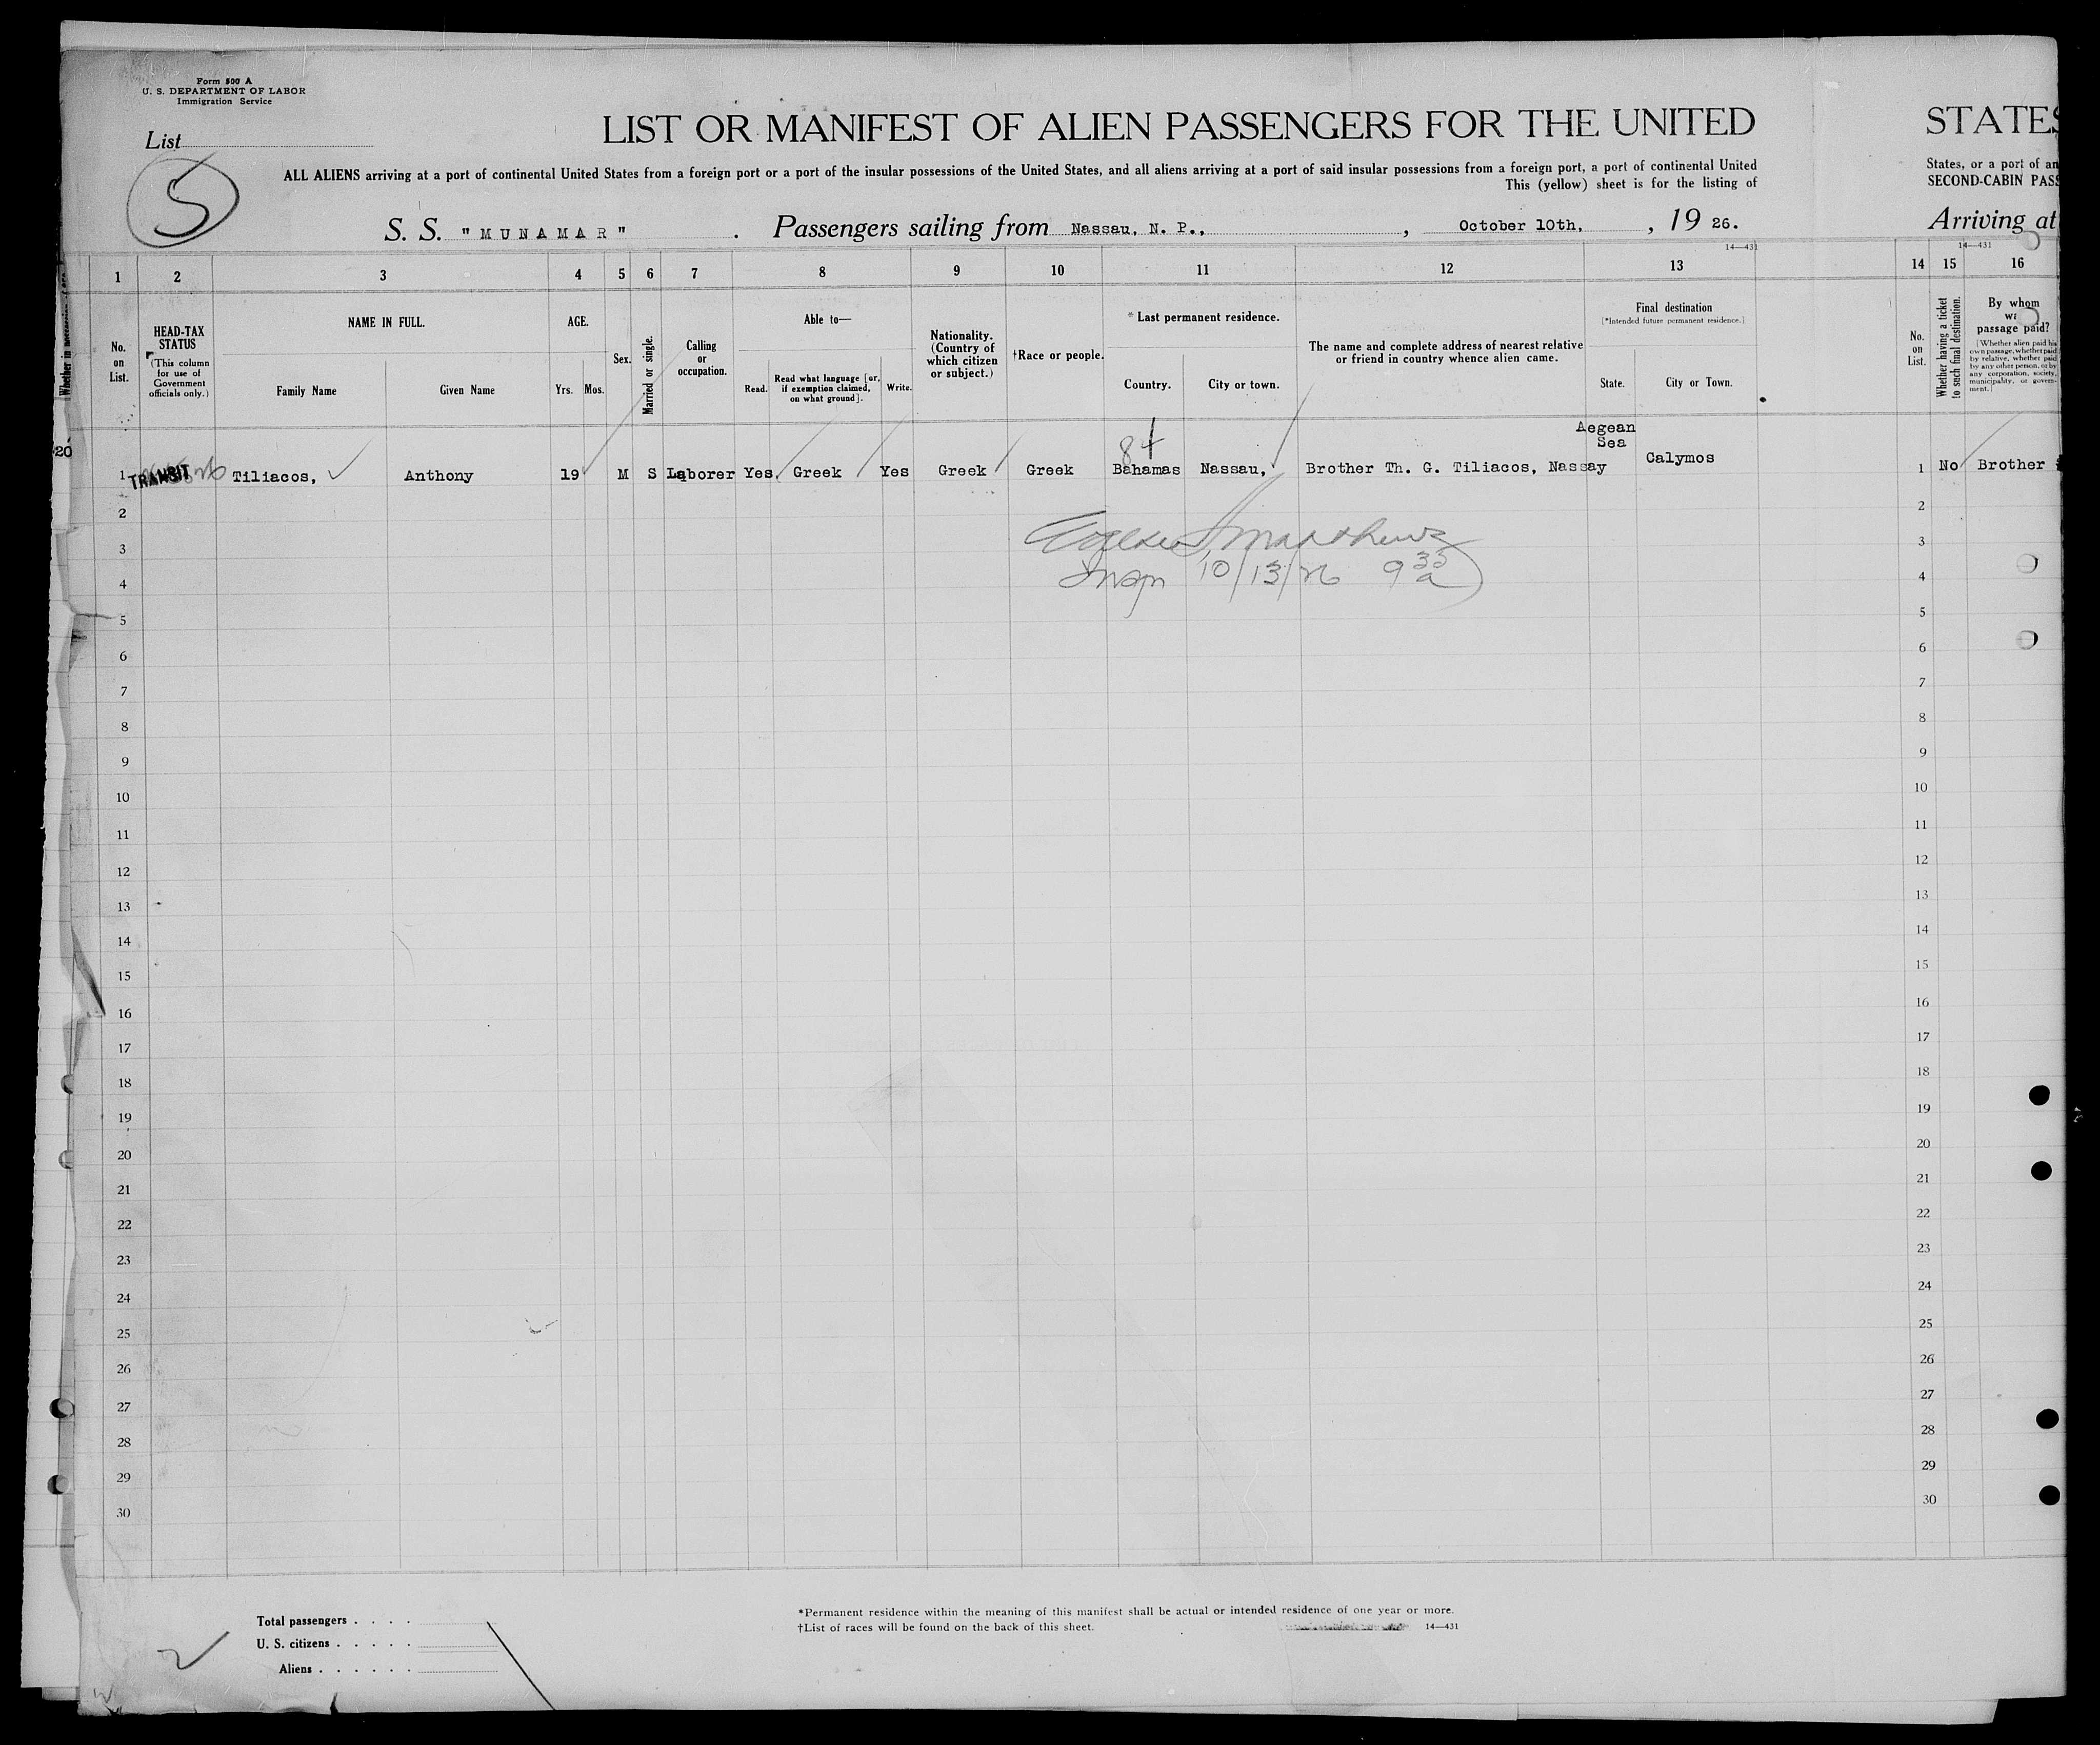 Form 500 A
U. S. DEPARTMENT OF LABOR
Immigration Service
List
5
LIST OR MANIFEST OF ALIEN PASSENGERS FOR THE UNITED
STATES
ALL ALIENS arriving at a port of continental United States from a foreign port or a port of the insular possessions of the United States, and all aliens arriving at a port of said insular possessions from a foreign port, a port of continental United
States, or a port of an
This (yellow) sheet is for the listing of
SECOND-CABIN PASS
S. S. "MUNAMAR" . Passengers sailing from Nassau, N. P., , October 10th, , 19 26.
Arriving at
14—431
14—431
1 2 3 4 5 6 7 8 9 10 11 12 13 14 15 16
No. on List.
HEAD-TAX STATUS
(This column for use of Government officials only.)
NAME IN FULL.
Family Name Given Name
AGE.
Yrs. Mos.
Sex.
Married or single.
Calling or occupation.
Able to—
Read. Read what language [or, if exemption claimed, on what ground]. Write.
Nationality. (Country of which citizen or subject.)
†Race or people.
* Last permanent residence.
Country. City or town.
The name and complete address of nearest relative or friend in country whence alien came.
Final destination
[*Intended future permanent residence.]
State. City or Town.
No. on List.
Whether having a ticket to such final destination.
By whom
passage paid?
[Whether alien paid his own passage, whether paid by relative, whether paid by any other person, or by any corporation, society, municipality, or government.]
20
84
Aegean Sea
1 TRANSIT Tiliacos, Anthony 19 M S Laborer Yes Greek Yes Greek Greek Bahamas Nassau, Brother Th. G. Tiliacos, Nassay Calymos 1 No Brother
2 2
3 Matthews 3
4 Insp 10/13/26 9 35 a 4
5 5
6 6
7 7
8 8
9 9
10 10
11 11
12 12
13 13
14 14
15 15
16 16
17 17
18 18
19 19
20 20
21 21
22 22
23 23
24 24
25 25
26 26
27 27
28 28
29 29
30 30
Total passengers . . . .
U. S. citizens . . . . .
Aliens . . . . . .
*Permanent residence within the meaning of this manifest shall be actual or intended residence of one year or more.
†List of races will be found on the back of this sheet.
14—431